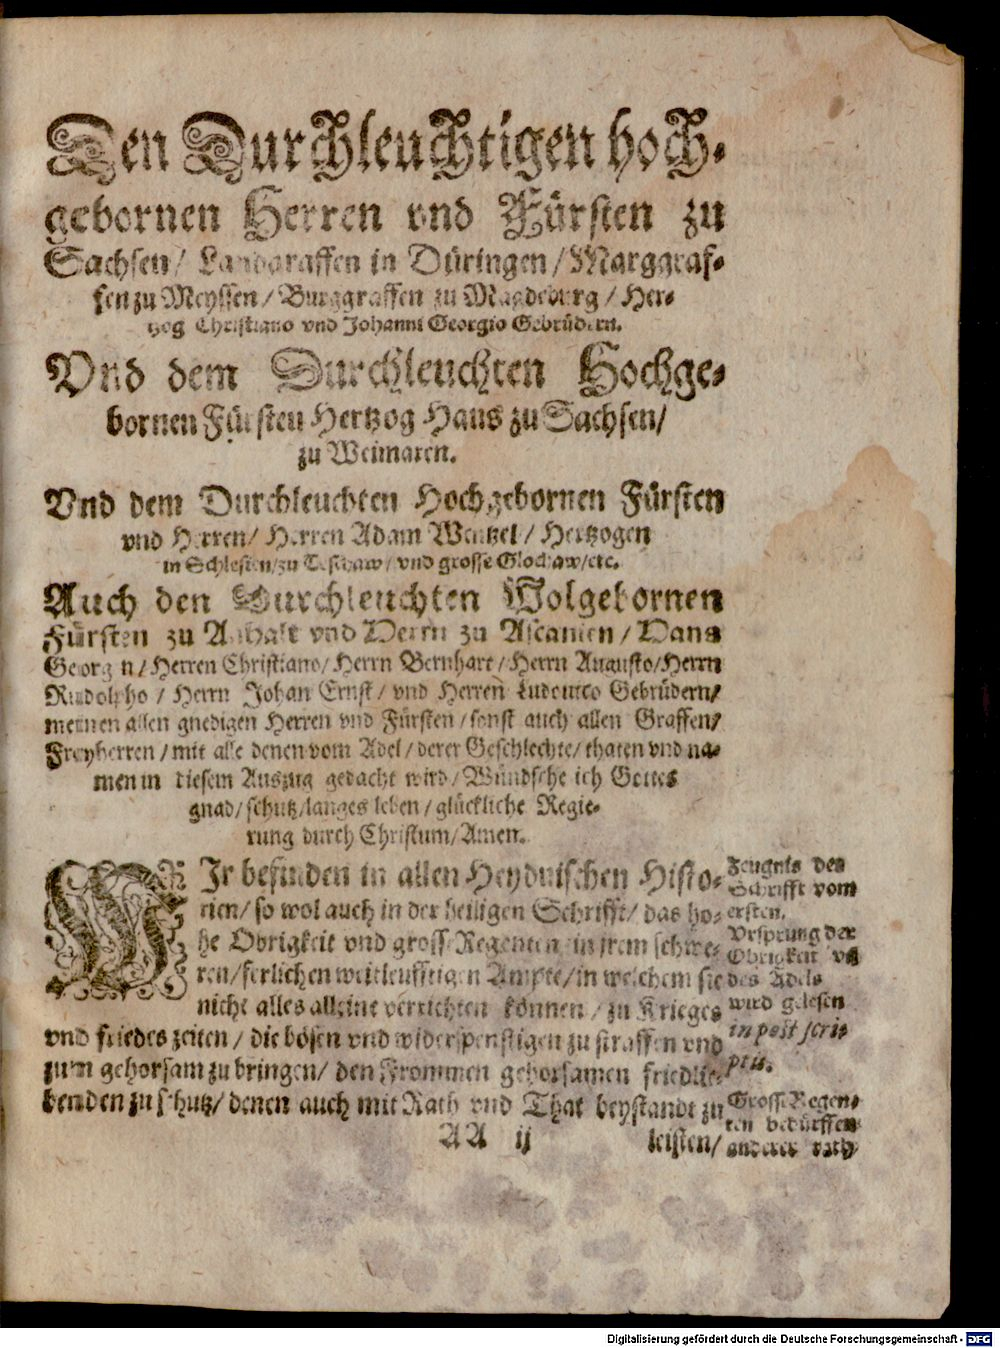 Den Durchleuchtigen hoch-
gebornen Herren vnd Fürsten zu
Sachsen/ Landgraffen in Düringen/ Marggraf-
fen zu Meyssen/ Burggraffen zu Magdeburg/ Her-
tzog Christiano vnd Johanni Georgio Gebrüdern.
Vnd dem Durchleuchten Hochge-
bornen Fürsten Hertzog Hans zu Sachsen/
zu Weimaren.
Vnd dem Durchleuchten Hochgebornen Fürsten
vnd Herren/ Herren Adam Wentzel/ Hertzogen
in Schlesien/ zu Teschaw/ vnd grosse Glochaw/ etc.
Auch den Durchleuchten Wolgebornen
Fürsten zu Anhalt vnd Herrn zu Ascanien/ Hans
Georgen/ Herren Christiano/ Herrn Bernhart/ Herrn Augusto/ Herrn
Rudolpho/ Herrn Johan Ernst/ vnd Herren Ludouico Gebrüdern/
meinen allen gnedigen Herren vnd Fürsten/ sonst auch allen Graffen/
Freyherren/ mit alle denen vom Adel/ derer Geschlechte/ thaten vnd na-
men in diesem Auszug gedacht wird/ Wündsche ich Gottes
gnad/ schutz/ langes leben/ glückliche Regie-
rung durch Christum/ Amen.
WIr befinden in allen Heydnischen Histo-
rien/ so wol auch in der heiligen Schrifft/ das ho-
he Obrigkeit vnd grosse Regenten in jrem schwe-
ren/ ferlichen weitleufftigen Ampte/ in welchem sie
nicht alles alleine verrichten können/ zu Krieges
vnd friedes zeiten/ die bösen vnd widerspenstigen zu straffen vnd
zum gehorsam zu bringen/ den Frommen gehorsamen friedlie-
benden zu schutz/ denen auch mit Rath vnd That beystandt zu
AA ij leisten/
Zeugnis der
Schrifft vom
ersten.
Vrsprung der
Obrigkeit vñ
des Adels
wird gelesen
in post scri-
ptis.
Grosse Regen-
ten bedürffen
anderer rath
Digitalisierung gefördert durch die Deutsche Forschungsgemeinschaft - DFG